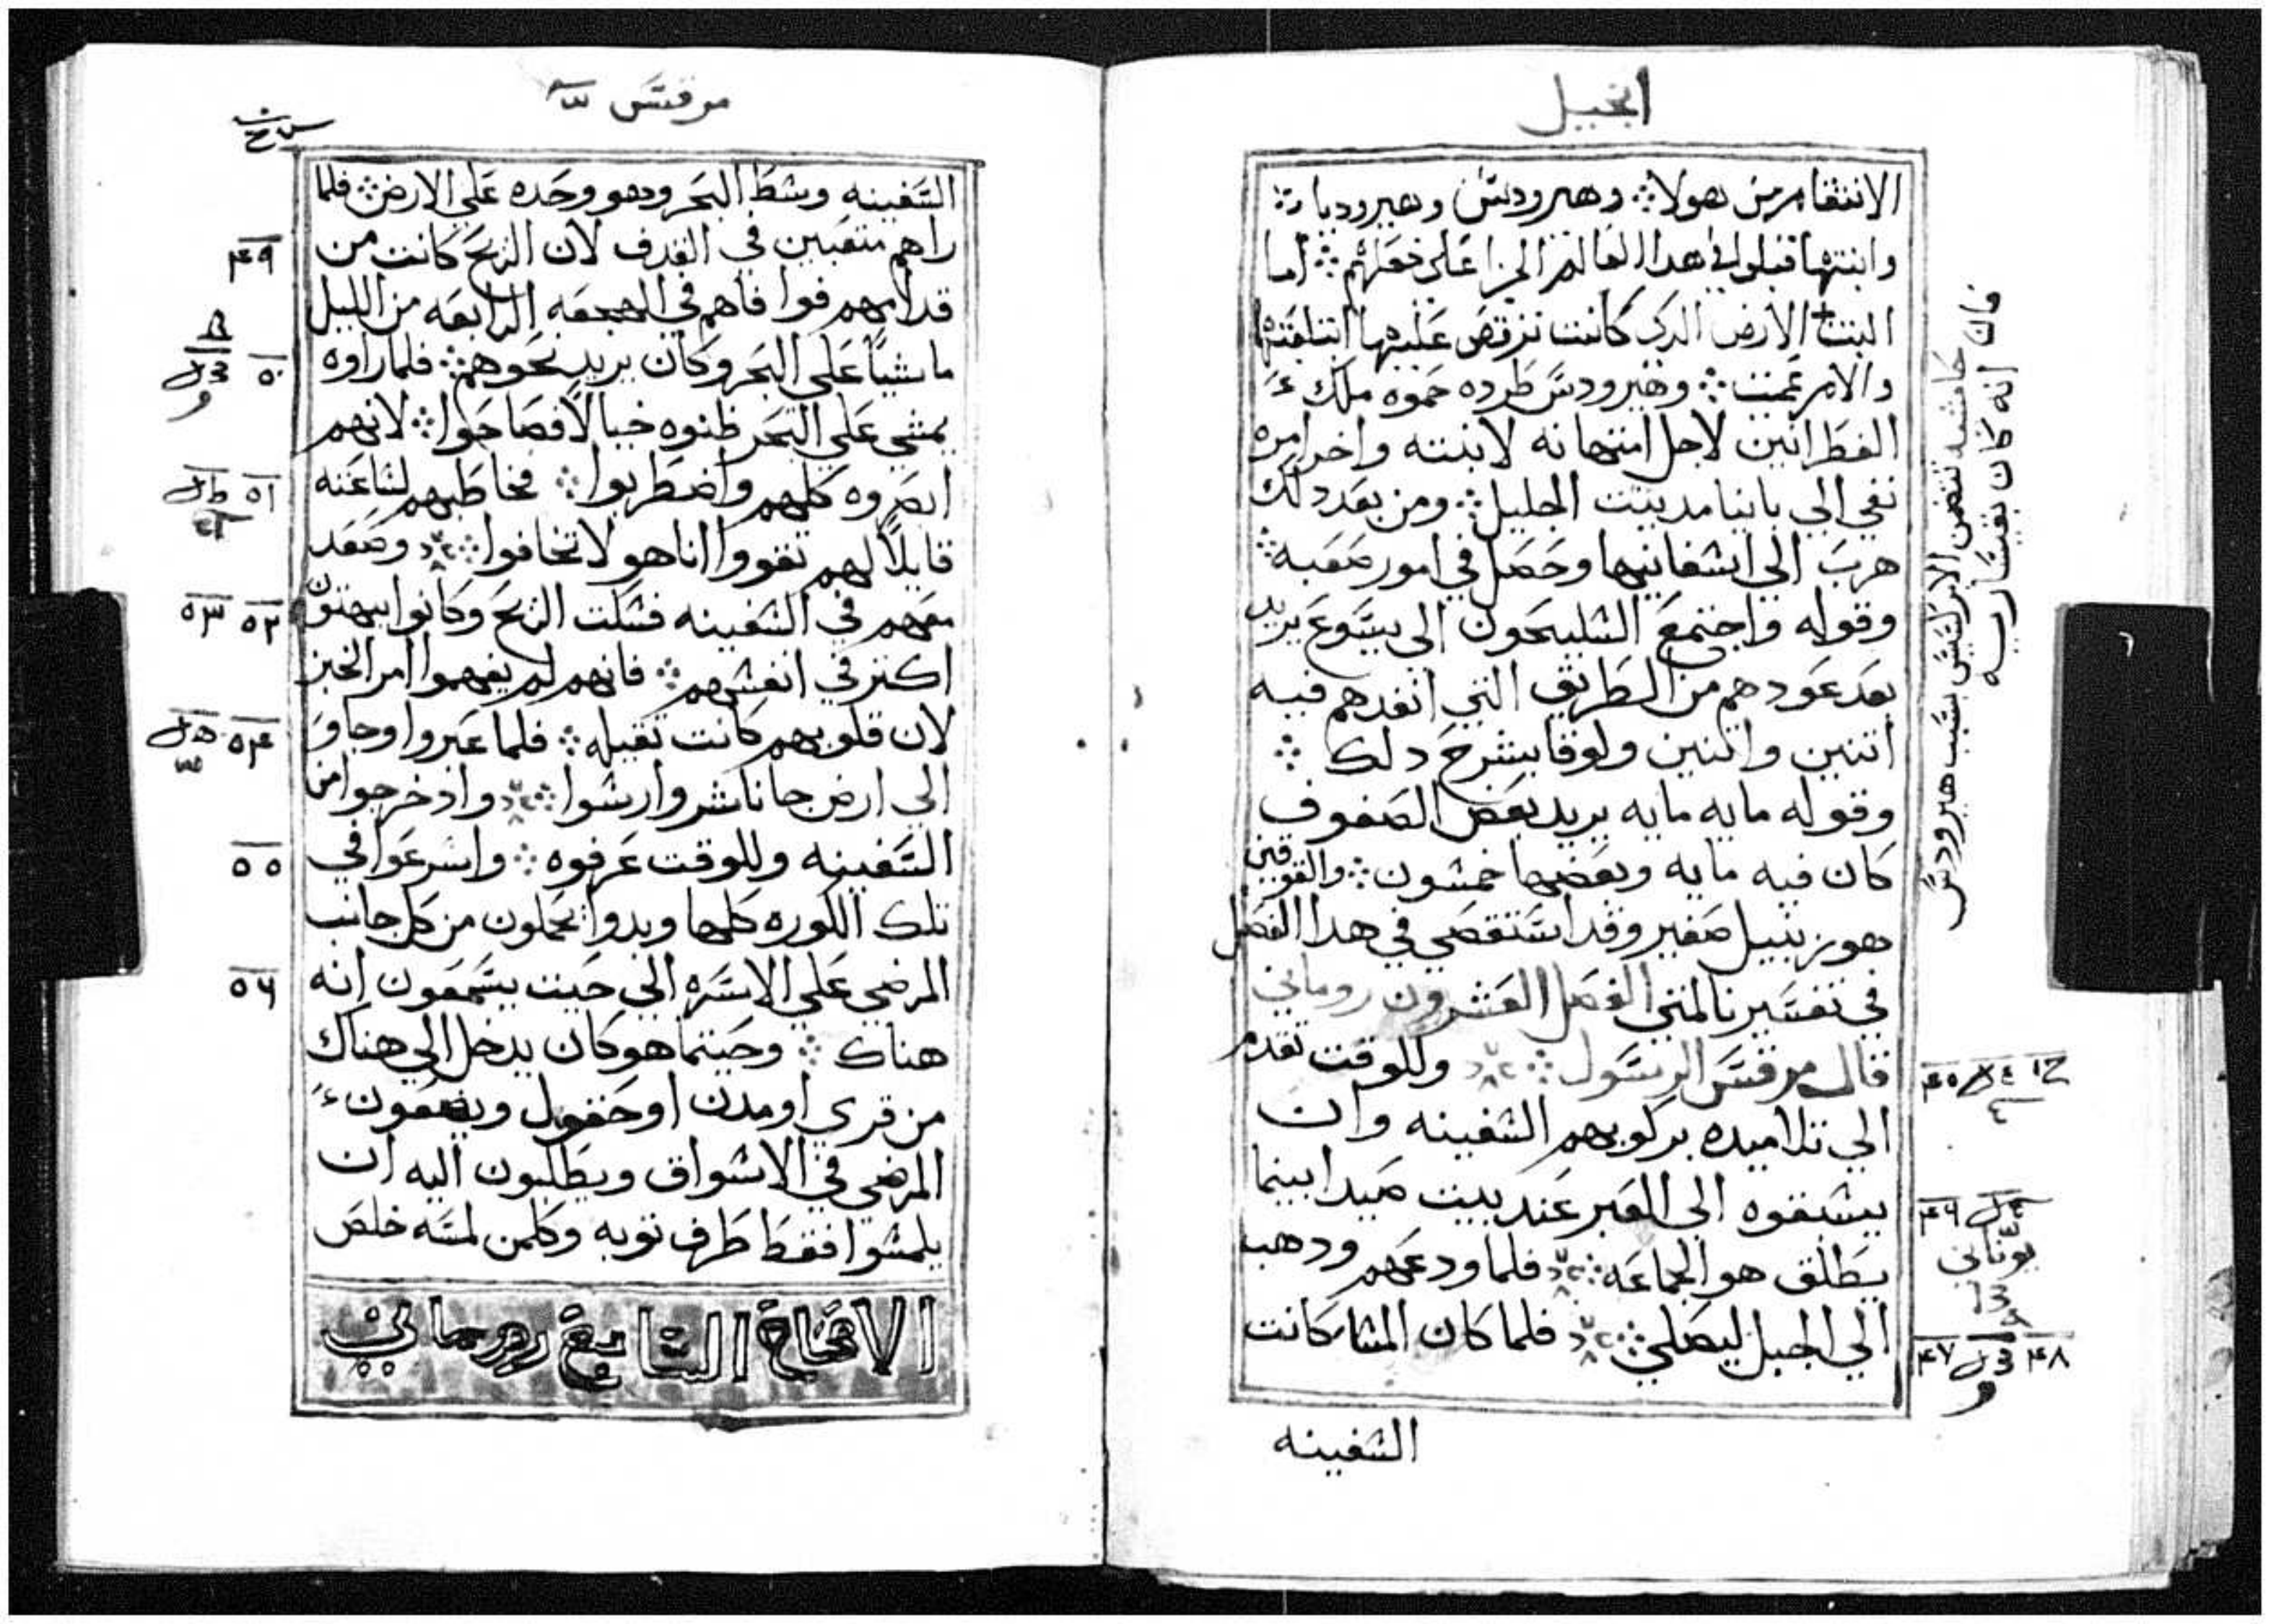 انجيل
الانتقام من هولا ܀ وهيرودس وهيروديا ܀
وابنتها قبلوا في هدا العالم الجزا على فعلهم ܀ اما
البنت الارض الدى كانت ترقص عليها ابتلعتها
والام عميت ܀ وهيرودس طرده حموه ملك
الغطرانيين لاجل امتهانه لابنته واخر امره
نفي الي بانيا مدينت الجليل ܀ ومن بعد دلك
هرب الي اسفانيها وحصل في امور صعبه ܀
وقوله واجتمع السليحون الى يسوع يريد
بعد عودهم من الطريق التي انفدهم فيه
اتنين واتنين ولوقا يشرح دلك ܀
وقوله مايه مايه يريد بعض الصفوف
كان فيه مايه وبعضها خمسون ܀ والقوفين
هو زنبيل صغير وقد استقصي في هدا الفصل
في تفسيرنا لمتي الفصل العشرون روماني
قال مرقس الرسول ܀ وللوقت تقدم
الي تلاميده بركوبهم السفينه وان
يسبقوه الى العبر عند بيت صيدا بينما
يطلق هو الجماعه ܀ فلما ودعهم ودهب
الي الجبل ليصلي ܀ فلما كان المسا كانت
السفينه
قال حاشيه تتضمن الابركسيس بسبب هيرودس
انه كان بقيساريه
٤٥
٤٦
يوناني
٤٧ ٤٨
مرقس
السفينه وسط البحر وهو وحده علي الارض ܀ فلما
راهم متعبين في القدف لان الريح كانت من
قدامهم فوافاهم في الهجعه الرابعه من الليل
ماشيًا علي البحر وكان يريد نحوهم ܀ فلما راوه
يمشي علي البحر ظنوه خيالًا فصاحوا ܀ لانهم
ابصروه كلهم واضطربوا ܀ فخاطبهم لساعته
قايلًا لهم تقووا انا هو لا تخافوا ܀ وصعد
معهم في السفينه فسكت الريح وكانوا يبهتون
اكتر في انفسهم ܀ فانهم لم يفهموا امر الخبز
لان قلوبهم كانت تقيله ܀ فلما عبروا وجاو
الي ارض جاناشر وارسوا ܀ واد خرجوا من
السفينه وللوقت عرفوه ܀ واسرعوا في
تلك الكوره كلها وبدوا يحملون من كل جانب
المرضي علي الاسره الي حيت يسمعون انه
هناك ܀ وحيتما هو كان يدخل الي هناك
من قري او مدن او حقول ويضعون
المرضي في الاسواق ويطلبون اليه ان
يلمسوا فقط طرف توبه وكلمن لمسه خلص
الاصحاح السابع روماني
٤٩
٥٠
٥١
٥٢ ٥٣
٥٤
٥٥
٥٦